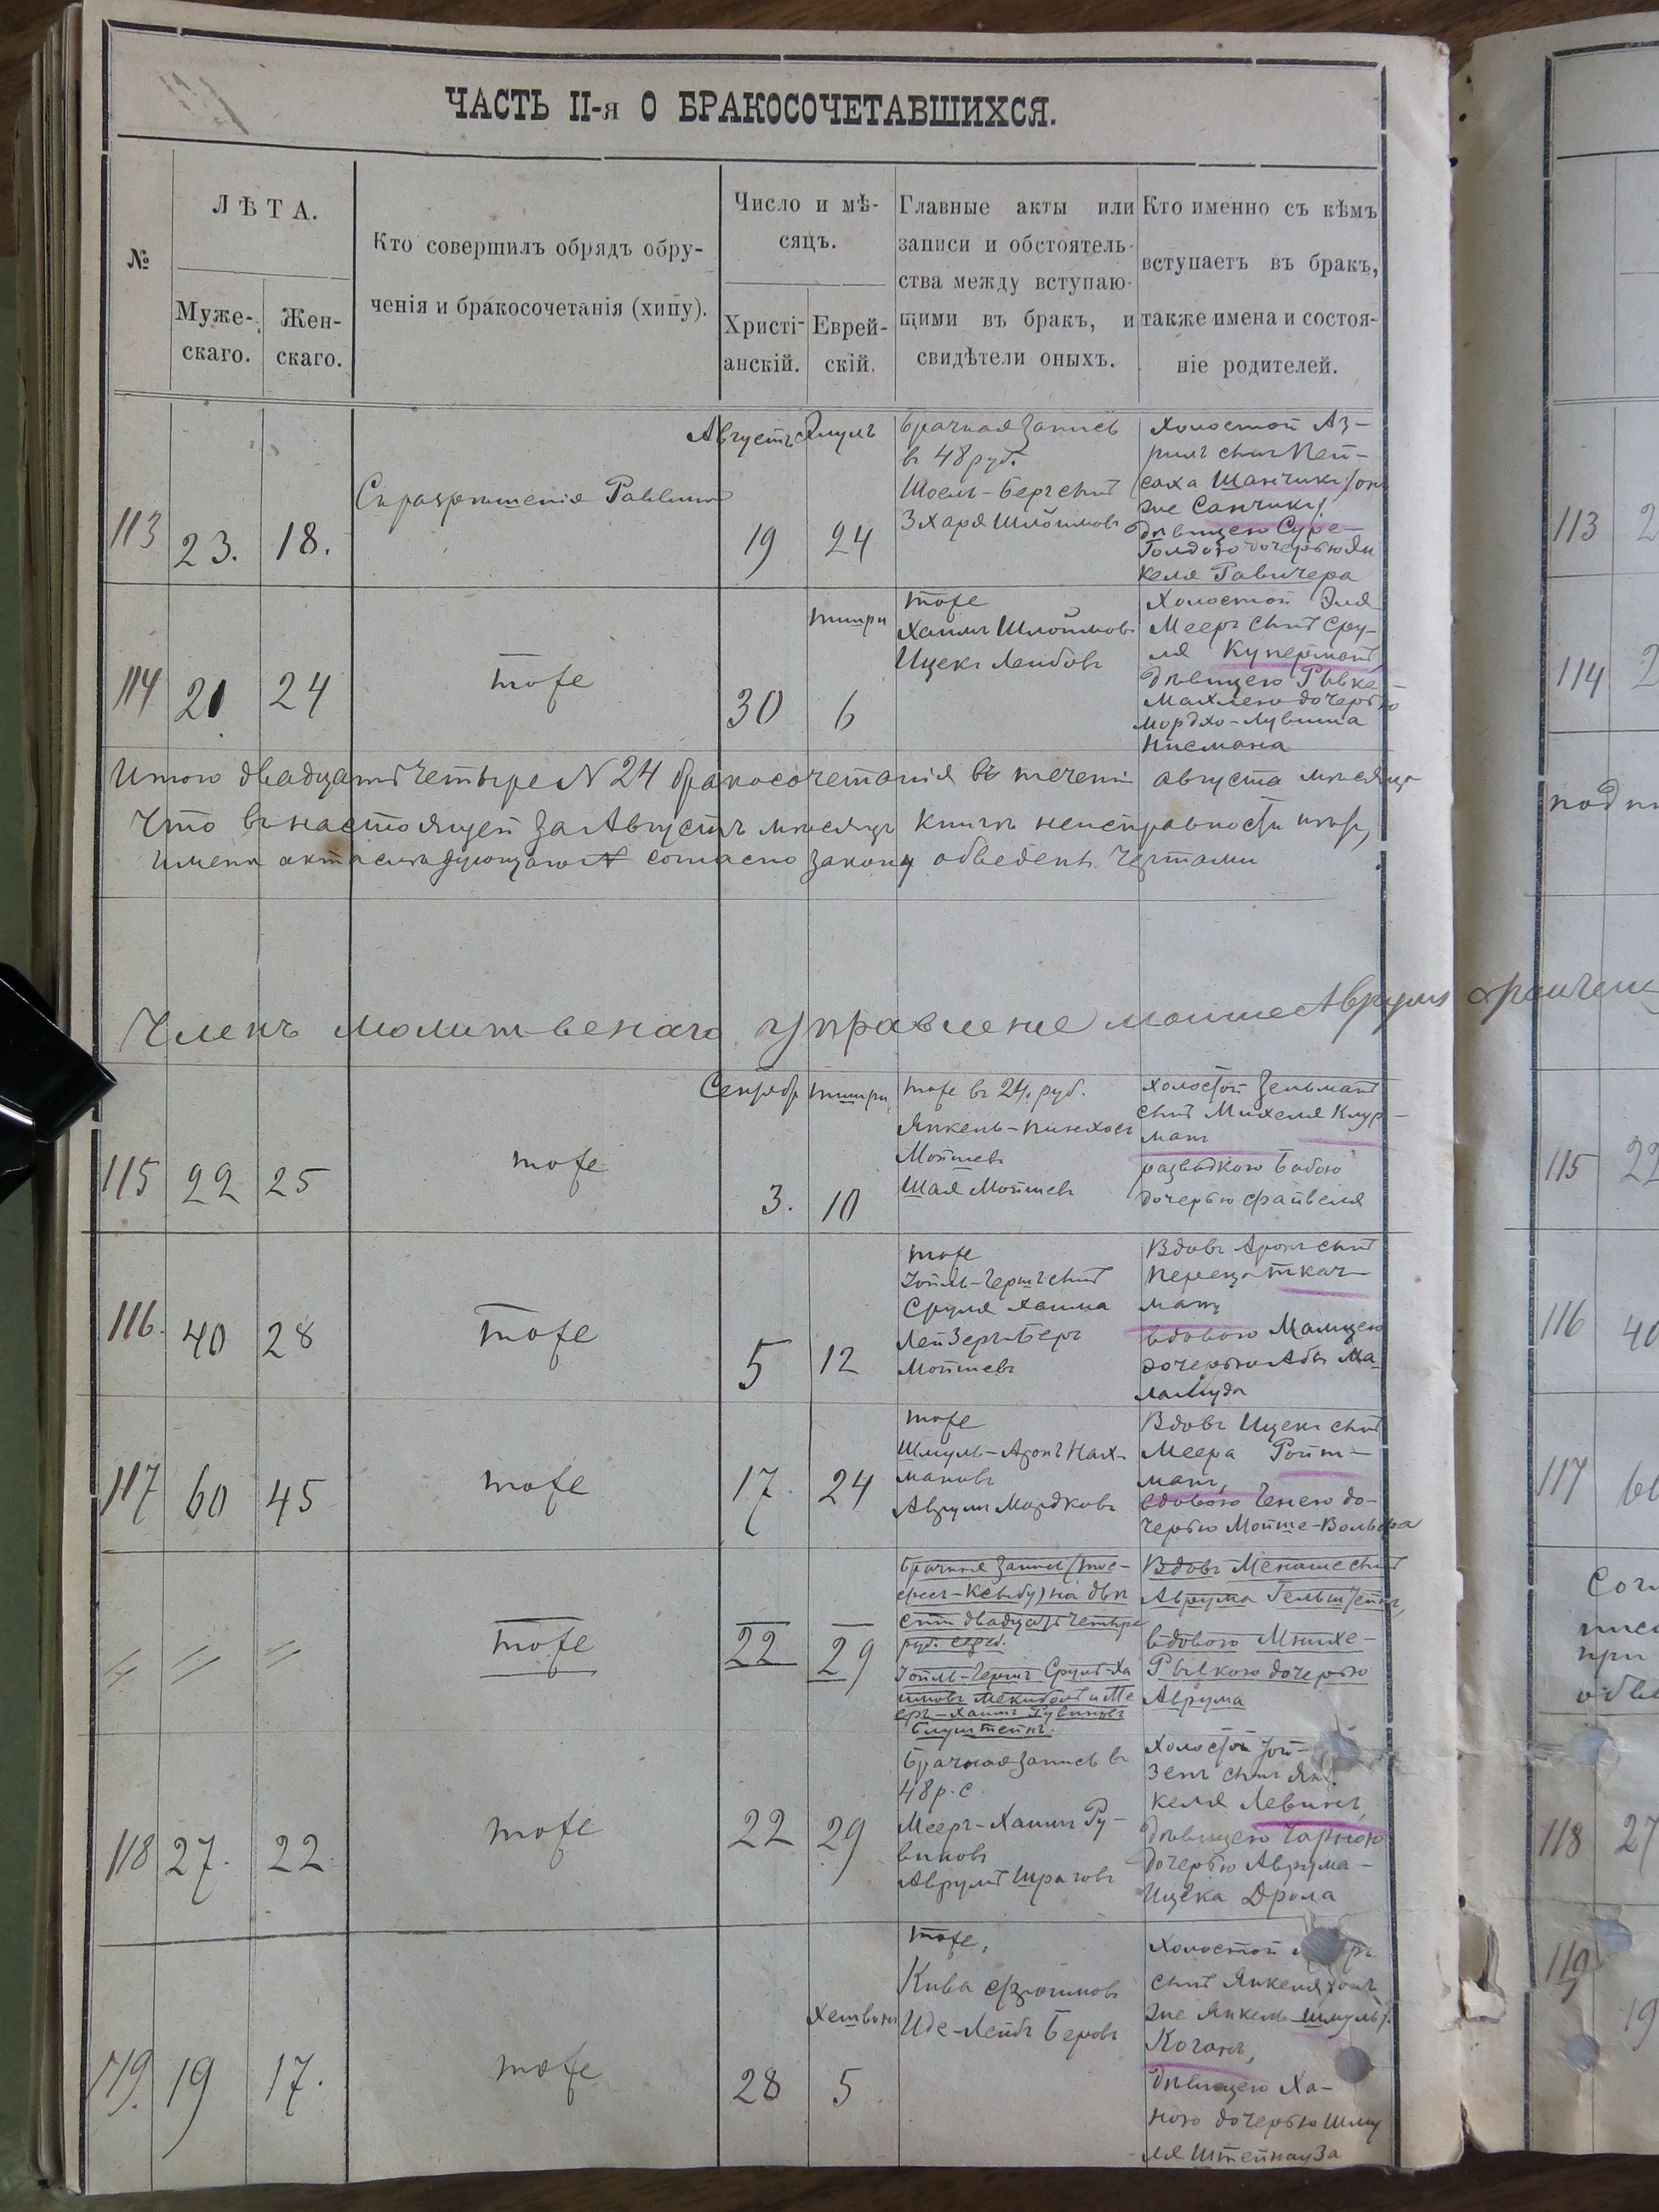 ЧАСТЬ II-я О БРАКОСОЧЕТАВШИХСЯ.
№
ЛѢТА.
Муже-
скаго.
Жен-
скаго.
Кто совершилъ обрядъ обру-
ченія и бракосочетанія (хипу).
Число и мѣ-
сяцъ.
Христі-
анскій.
Еврей-
скій.
Главные акты или
записи и обстоятель-
ства между вступаю-
щими въ бракъ, и
свидѣтели оныхъ.
Кто именно съ кѣмъ
вступаетъ въ бракъ,
также имена и состоя-
ніе родителей.
113
23.
18.
Съ разрешенія Раввина
Августъ
19
Элулъ
24
Брачная запись
в 48 руб.
Шоель-Беръ сынъ
Зхаря Шлоймовъ
Холостой Аз-
рилъ сынъ Пей-
саха Шанчикъ (он
же Санчикъ)
дѣвицею Суре-
Голдою дочерью Ян
келя Равичера
114
21
24
тоже
30
тишри
6
тоже
Хаимъ Шлоймовъ
Ицекъ Лейбовъ
Холостой Эля
Мееръ сынъ Сру-
ля Куперманъ
дѣвицею Рывке-
Махлею дочерью
Мордхо-Лувиша
Нисмана
Итого двадцать четыре № 24 бракосочетанія въ теченіи августа мѣсяца
Что въ настоящей за Августъ мѣсяцъ книгѣ неисправности
имена акта слѣдующаго № согласно закону обведенъ чертами
Членъ молитвенаго управление мошше Аврумъ
115
22
25
тоже
Сентябр
3.
тишри
10
тоже въ 24. руб.
Янкель-Пинхосъ
Мойшевъ
Шая Мойшевъ
холостой Зельманъ
сынъ Михеля Клур-
манъ
разводкою Бобою
дочерью Файвеля
116.
40
28
тоже
5
12
тоже
Іойль-Гершъ сынъ
Сруля Хаима
Лейзеръ-Беръ
Мойшевъ
Вдовъ Аронъ сынъ
Переца Ткач-
манъ
вдовою Малцею
дочерью Абы Ма-
ламуда
117
60
45
тоже
17.
24
тоже
Шмуль-Аронъ Нах-
мановъ
Аврумъ Мордковъ
Вдовъ Ицекъ сынъ
Меера Ройт-
манъ,
вдовою Генею до-
черью Мойше-Вольфа
тоже
22
29
Брачная запись (тос-
фесъ-Ксыбу) на двѣ
сти двадцать четыре
руб. сереб.
Іойль-Гершъ Срулъ-Ха
имовъ и Ме
еръ-Хаимъ Рувиновъ
Блуштейнъ.
Вдовъ Менаше сынъ
Аврума Гельштейнъ,
вдовою Мнихе-
Рывкою дочерью
Аврума
118
27.
22
тоже
22
29
Брачная запись въ
48 р. с.
Мееръ-Хаимъ Ру-
виновъ
Аврумъ Шраговъ
холостой Іой-
зепъ сынъ Ян-
келя Левинъ,
дѣвицею Чарною
дочерью Аврума-
Ицека Дрола
119.
19
17.
тоже
28
Хешвонъ
5
тоже,
Кива Фроимовъ
Иде-Лейбъ Беровъ
Холостой
сынъ Янкеля (онъ
же Янкель-Шмуль)
Коганъ,
дѣвицею Ха-
ною дочерью Шму
ля Штейнауза
113
114
115
22
116
40
117
118
27
119
19